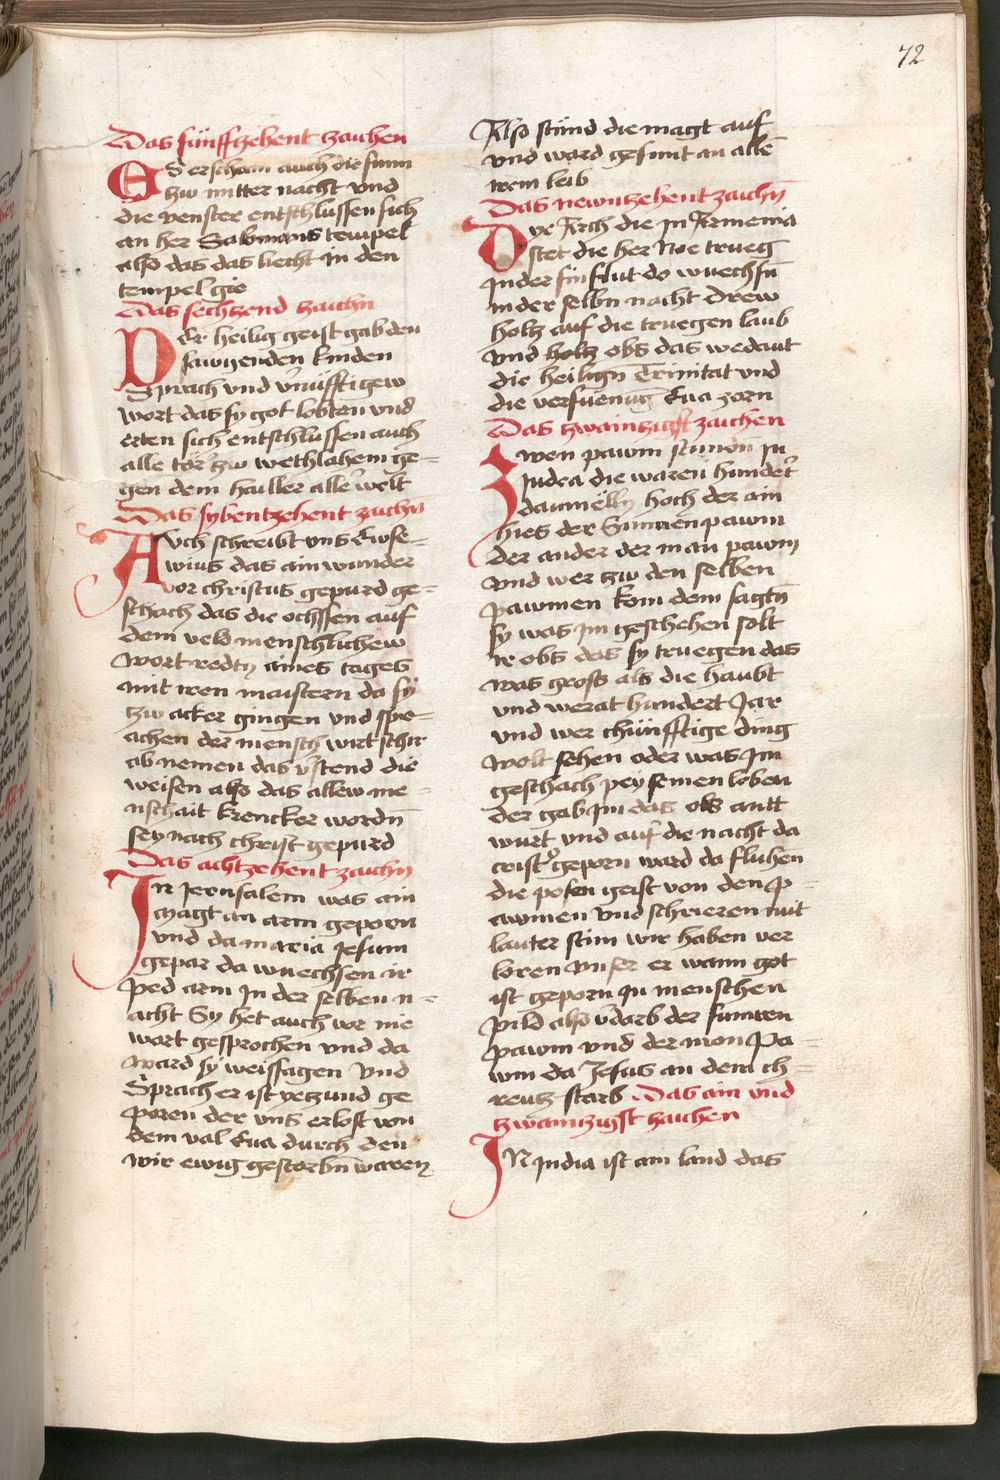 72
Das fünffzehent zaichen
ES erschain auch die sunn
zw mitter nacht vnd
die venster entschlussen sich
an her Salomons tempel
also das das liecht in den
tempel gie
Das sechzend zaichn
Der heilig geist gab den
sawgenden kinden
Sprach vnd v̄nüfftigew
wort das sy got lobten vnd
erten sich entschlussen auch
alle tör zw wethlahem ge=
gen dem hailler alle welt
Das sybentzehent zaichn
Auch schreibt vns Ewse=
wius das ain wunder
vor christus gepurd ge=
schach das die ochssen auf
dem veld menschlichew
wort redtn aines tages
mit iren maistern da sy
zw acker gingen vnd spr=
achen der mensch wirt schir
ab nemen das v̄stend die
weisen also das allew me=
nschait krencker wordn̄
sey nach christ gepurd
Das achtzehent zaichn
In Jerusalem was ain
magt an arm geporn
vnd da maria Jesum
gepar da wuechsen ir
ped arm in der selben n=
acht Sy het auch vor nie
wort gesprochen vnd da
ward sy weissagen vnd
Sprach er ist yetzund ge
poren der vns erlost von
dem val Eua durch den
wir ewig gestorbn̄ waren
Also stünd die magt auf
vnd ward gesunt an alle̅
irem leib
Das newntzehent zaichn̄
Dye Arch die in Armenia
stet die her Noe trueg
in der sinflut do wuechsn̄
in der selbn nacht drew
holtz auf die truegen laub
vnd holtz obs das wedaut
die heilign Trinitat vnd
die versuenug Eua zorn
Das zwainzigist zaichen
Zwen pawm stunden in
Judea die waren hundert
daumelln hoch der ain
hies der Sunnen pawm
der ander der man pawm
vnd wer zw den selben
pawmen kom dem sagtn̄
sy was im geschehen solt
ir obs das sy truegen das
was gross als die haubt
vnd werat hundert Jar
vnd wer chünfftige ding
wolt sehen oder was im
geschach pey seinen leben
der gab im das obs antt
wurt vnd auf die nacht da
crist9 geporn ward da fluhen
die posen geist von den p=
awmen vnd schrieren mit
lauter stim wir haben ver
loren vnser er wann got
ist geporn in menschen
pild also v̄darb der sunnen
pawm vnd der mon Pa=
wm da Jesus an dem ch=
reutz starb Das ain vnd
zwaintzigist zaichen
IN India ist ain land das